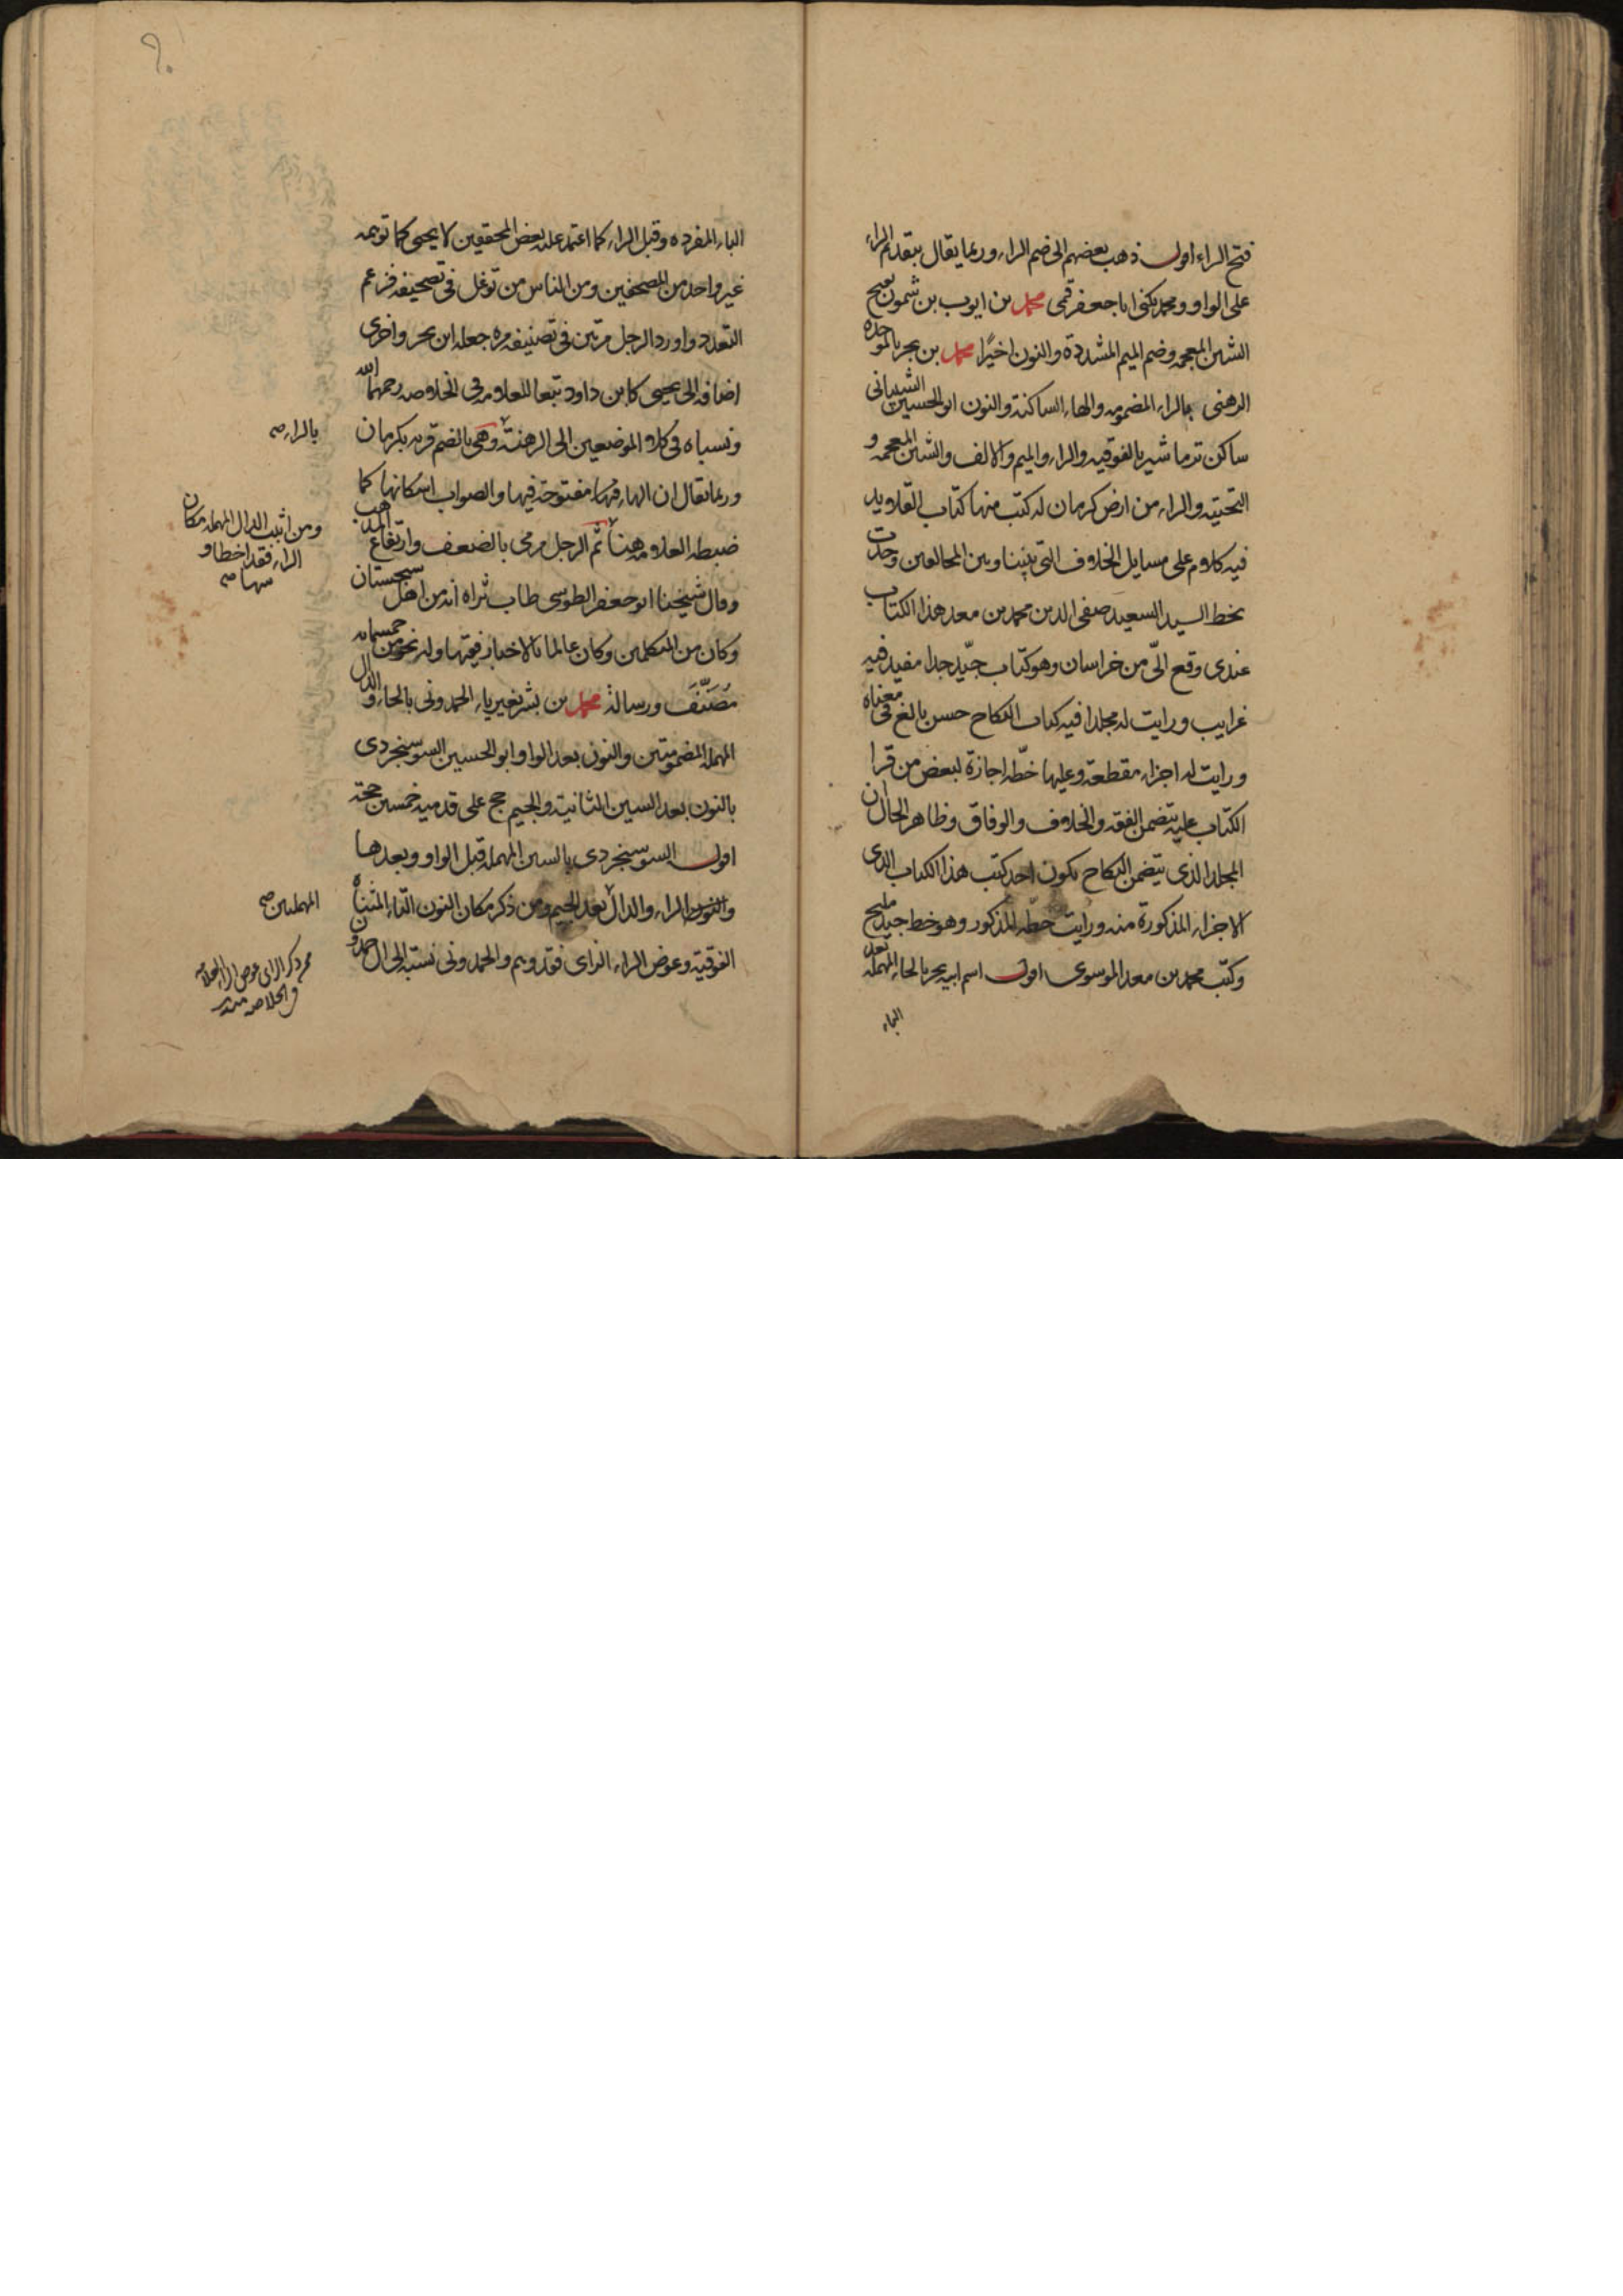 فتح الراء اول ذهب بعضهم الى ضم الراء وربما يقال بتقديم الراء
على الواو ومحمد يكنى ابا جعفر قمى محمد بن ايوب بن شمون بفتح
الشين المعجمه وضم الميم المشددة والنون اخيرا محمد بن بحر بالموحده
الرهنى بالراء المضمومه والهاء الساكنة والنون ابو الحسين الشيبانى
ساكن ترماشير بالفوقيه والراء والميم والالف والشين المعجمه و
التحتيه والراء من ارض كرمان له كتب منها كتاب القلايد
فيه كلام على مسايل الخلاف التى بيننا وبين المخالفين وجدت
بخط السيد السعيد صفى الدين محمد بن معد هذا الكتاب
عندى وقع الىّ من خراسان وهو كتاب جيّد جدا مفيد فيه
غرايب ورايت له مجلدا فيه كتاب النكاح حسن بالغ فى معناه
ورايت له اجزاء مقطعة وعليها خطّه اجازة لبعض من قرا
الكتاب عليه تتضمن الفقه والخلاف والوفاق وظاهر الحال ان
المجلد الذى يتضمن النكاح يكون احد كتب هذا الكتاب الذى
الاجزاء المذكورة منه ورايت خطّه المذكور وهو خط جيد مليح
وكتب محمد بن معد الموسوى اول اسم ابيه بحر بالحاء المهمله بعد
الباء
الباء المفرده وقبل الراء كما اعتمد عليه بعض المحققين لا يحيى كما توهمه
غير واحد من المصحفين ومن الناس من توغل فى تصحيفه فزعم
التعدد واورد الرجل مرتين فى تصنيفه مره جعله ابن بحر واخرى
اضافه الى يحيى كابن داود تبعا للعلامه فى الخلاصه رحمهما الله
ونسباه فى كلا الموضعين الى الرهنة وهى بالضم قريه بكرمان
وربما يقال ان الهاء فيها مفتوحة فيها والصواب اسكانها كما
ضبطه العلامه هينا ثم الرجل رمى بالضعف وارتفاع المذهب
وقال شيخنا ابو جعفر الطوسى طاب ثراه انه من اهل سجستان
وكان من المتكلمين وكان عالما بالاخبار فقيها وله نحو من خمسمائه
مُصَنَّف ورسالة محمد بن بشر بغير ياء الحمدونى بالحاء والدال
المهمله المضمومتين والنون بعد الواو ابو الحسين السوسنجردى
بالنون بعد السين الثانية والجيم حج على قدميه خمسين حجة
اول السوسنجردى بالسين المهمله قبل الواو وبعدها
والنون والراء والدال بعد الجيم ومن ذكر مكان النون التاء المثناة
الفوقية وعوض الراء الزاى فقد وهم والحمدونى نسبة الى ال حمدون
بالراء صح
ومن اثبت الدال المهمله مكان
الراء فقد اخطا و
سها صح
المهملتين صح